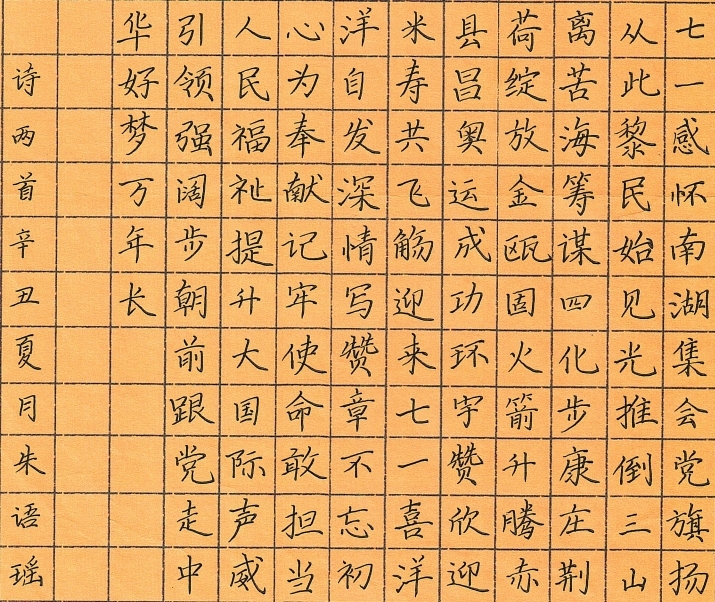 七一感怀南湖集会党旗扬
从此黎民始见光推倒三山
离苦海筹谋四化步康庄荆
荷绽放金瓯固火箭升腾赤
县昌奥运成功环宇赞欣迎
米寿共飞觞迎来七一喜洋
洋自发深情写赞章不忘初
心为奉献记牢使命敢担当
人民福祉提升大国际声威
引领强阔步朝前跟党走中
华好梦万年长
诗两首辛丑夏月朱语瑶